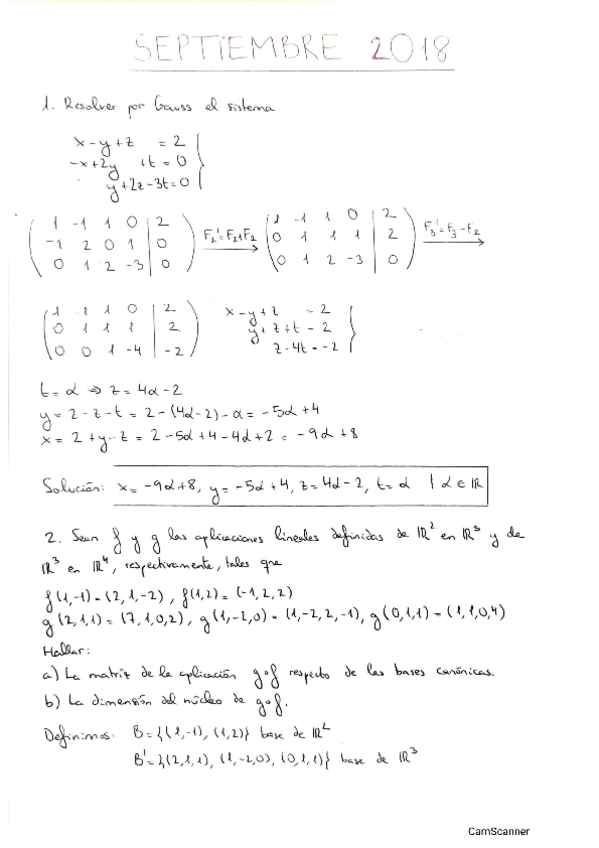 SEPTIEMBRE 2018
1. Resolver por Gauss el sistema
x-y+z = 2
-x+2y +t = 0
y+2z-3t=0
1 -1 1 0 | 2
-1 2 0 1 | 0
0 1 2 -3 | 0
F2'=F2+F1
1 -1 1 0 | 2
0 1 1 1 | 2
0 1 2 -3 | 0
F3'=F3-F2
1 -1 1 0 | 2
0 1 1 1 | 2
0 0 1 -4 | -2
x-y+z = 2
y+z+t = 2
z-4t = -2
t=α ⇒ z=4α-2
y=2-z-t=2-(4α-2)-α=-5α+4
x=2+y-z=2-5α+4-4α+2=-9α+8
Solución: x=-9α+8, y=-5α+4, z=4α-2, t=α | α∈ℝ
2. Sean f y g las aplicaciones lineales definidas de ℝ² en ℝ³ y de
ℝ³ en ℝ⁴, respectivamente, tales que
f(1,-1)=(2,1,-2), f(1,2)=(-1,2,2)
g(2,1,1)=(7,1,0,2), g(1,-2,0)=(1,-2,2,-1), g(0,1,1)=(1,1,0,4)
Hallar:
a) La matriz de la aplicación g∘f respecto de las bases canónicas.
b) La dimensión del núcleo de g∘f.
Definimos: B={(1,-1), (1,2)} base de ℝ²
B'={(2,1,1), (1,-2,0), (0,1,1)} base de ℝ³
CamScanner